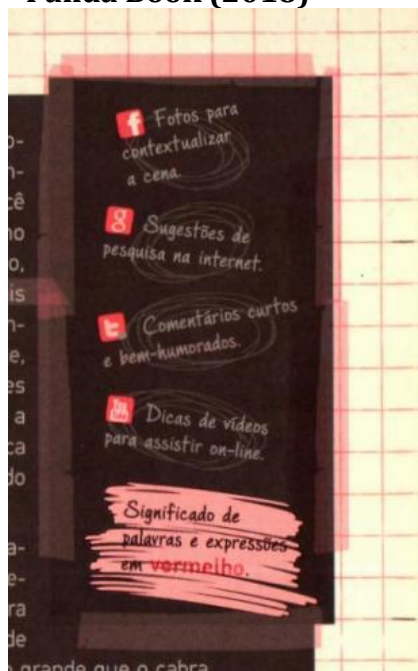 Panda Book (2018)
f Fotos para
contextualizar
a cena.
g Sugestões de
pesquisa na internet.
t Comentários curtos
e bem-humorados.
You Tube Dicas de vídeos
para assistir on-line.
Significado de
palavras e expressões
em vermelho.
grande que o cabra